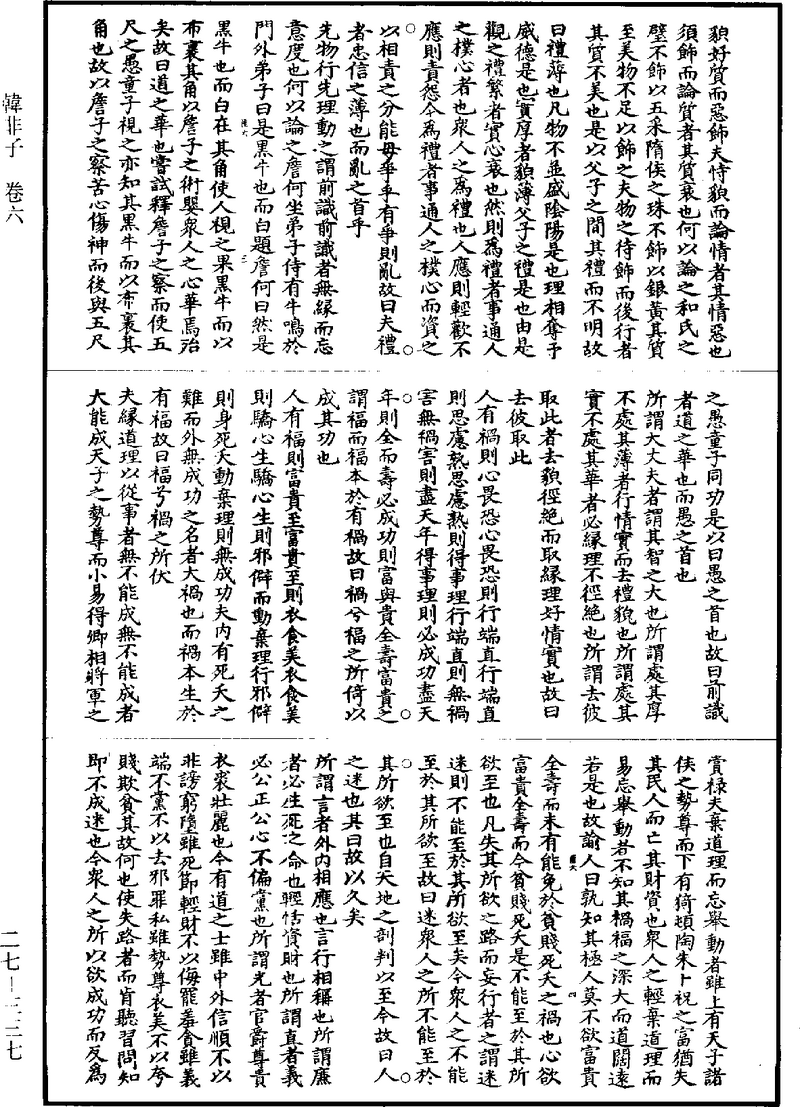 韓非子　卷六
貌好質而惡飾夫恃貌而論情者其情惡也
須飾而論質者其質衰也何以論之和氏之
璧不飾以五采隋侯之珠不飾以銀黃其質
至美物不足以飾之夫物之待飾而後行者
其質不美也是以父子之間其禮而不明故
曰禮薄也凡物不並盛陰陽是也理相奪予
威德是也實厚者貌薄父子之禮是也由是
觀之禮繁者實心衰也然則為禮者事通人
之樸心者也眾人之為禮也人應則輕歡不
應則責怨今為禮者事通人之樸心而資之
以相責之分能毋爭乎有爭則亂故曰夫禮
者忠信之薄也而亂之首乎
先物行先理動之謂前識前識者無緣而忘
意度也何以論之詹何坐弟子侍有牛鳴於
門外弟子曰是黑牛也而白題詹何曰然是
黑牛也而白在其角使人視之果黑牛而以
布裹其角以詹子之術嬰眾人之心華焉殆
矣故曰道之華也嘗試釋詹子之察而使五
尺之愚童子視之亦知其黑牛而以布裹其
角也故以詹子之察苦心傷神而後與五尺
之愚童子同功是以曰愚之首也故曰前識
者道之華也而愚之首也
所謂大丈夫者謂其智之大也所謂處其厚
不處其薄者行情實而去禮貌也所謂處其
實不處其華者必緣理不徑絕也所謂去彼
取此者去貌徑絕而取緣理好情實也故曰
去彼取此
人有禍則心畏恐心畏恐則行端直行端直
則思慮熟思慮熟則得事理行端直則無禍
害無禍害則盡天年得事理則必成功盡天
年則全而壽必成功則富與貴全壽富貴之
謂福而福本於有禍故曰禍兮福之所倚以
成其功也
人有福則富貴至富貴至則衣食美衣食美
則驕心生驕心生則邪僻而動棄理行邪僻
則身死夭動棄理則無成功夫內有死夭之
難而外無成功之名者大禍也而禍本生於
有福故曰福兮禍之所伏
夫緣道理以從事者無不能成無不能成者
大能成天子之勢尊而小易得卿相將軍之
賞祿夫棄道理而忘舉動者雖上有天子諸
侯之勢尊而下有猗頓陶朱卜祝之富猶失
其民人而亡其財資也眾人之輕棄道理而
易忘舉動者不知其禍福之深大而道闊遠
若是也故諭人曰孰知其極人莫不欲富貴
全壽而未有能免於貧賤死夭之禍也心欲
富貴全壽而今貧賤死夭是不能至於其所
欲至也凡失其所欲之路而妄行者之謂迷
迷則不能至於其所欲至矣今眾人之不能
至於其所欲至故曰迷眾人之所不能至於
其所欲至也自天地之剖判以至今故曰人
之迷也其曰故以久矣
所謂言者外內相應也言行相稱也所謂廉
者必生死之命也輕恬資財也所謂直者義
必公正公心不偏黨也所謂光者官爵尊貴
衣裘壯麗也今有道之士雖中外信順不以
非謗窮墮雖死節輕財不以侮罷羞貪雖義
端不黨不以去邪罪私雖勢尊衣美不以夸
賤欺貧其故何也使失路者而肯聽習問知
即不成迷也今眾人之所以欲成功而反為
二七－三二七